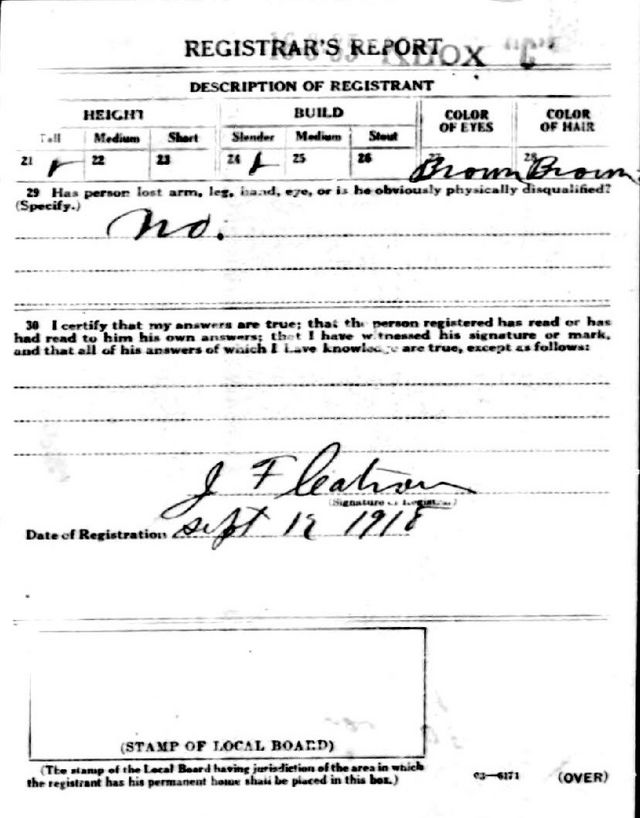 REGISTRAR'S REPORT
KBOX "C"
DESCRIPTION OF REGISTRANT
HEIGHT BUILD COLOR OF EYES COLOR OF HAIR
Tall Medium Short Slender Medium Stout
21 ✓ 22 23 24 ✓ 25 26 27 Brown 28 Brown
29 Has person lost arm, leg, hand, eye, or is he obviously physically disqualified?
(Specify.)
No.
30 I certify that my answers are true; that the person registered has read or has
had read to him his own answers; that I have witnessed his signature or mark,
and that all of his answers of which I have knowledge are true, except as follows:
J F
(Signature of Registrar)
Date of Registration Sept 12 1918
(STAMP OF LOCAL BOARD)
(The stamp of the Local Board having jurisdiction of the area in which
the registrant has his permanent home shall be placed in this box.)
03—6171 (OVER)